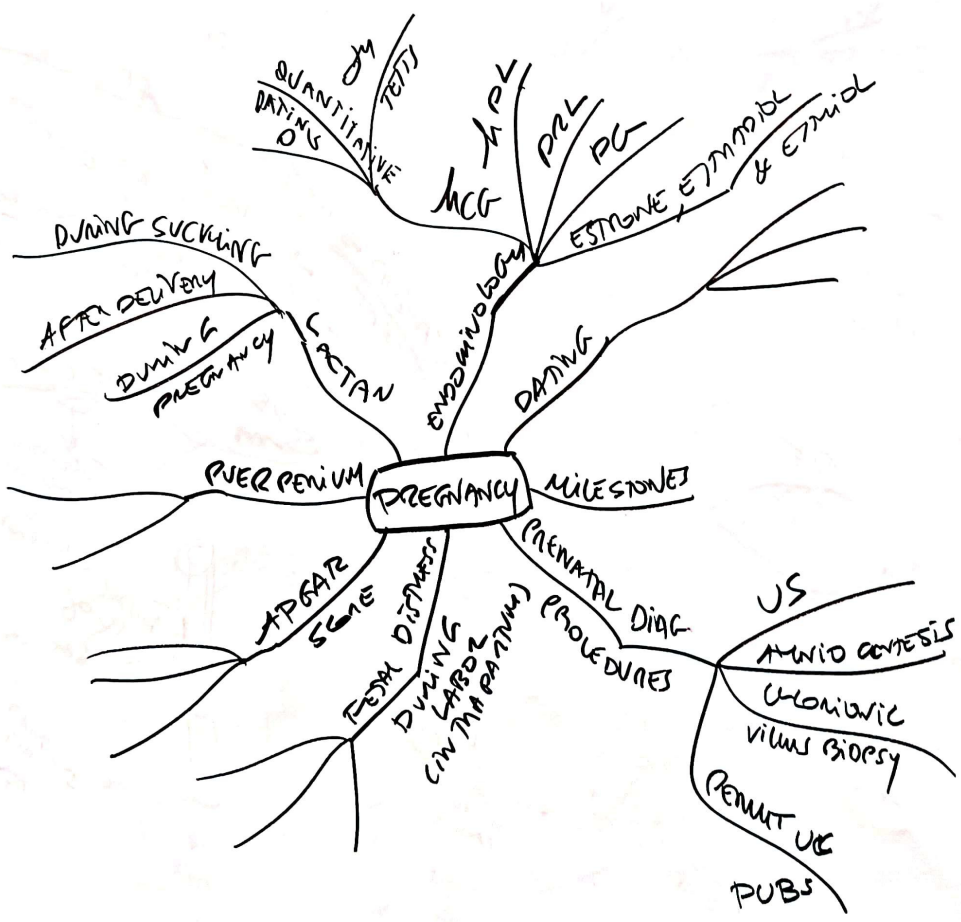 PREGNANCY
ENDOCRINOLOGY
hCG
QUANTITATIVE
DATING
TESTS
hPL
PRL
PG
ESTRONE, ESTRADIOL
& ESTRIOL
DATING
MILESTONES
PRENATAL DIAG
PROCEDURES
US
AMNIO CENTESIS
CHORIONIC
VILLUS BIOPSY
PUBS
FETAL DISTRESS
DURING
LABOR
(INTRAPARTUM)
APGAR
SCORE
PUERPERIUM
DURING SUCKLING
AFTER DELIVERY
DURING
PREGNANCY